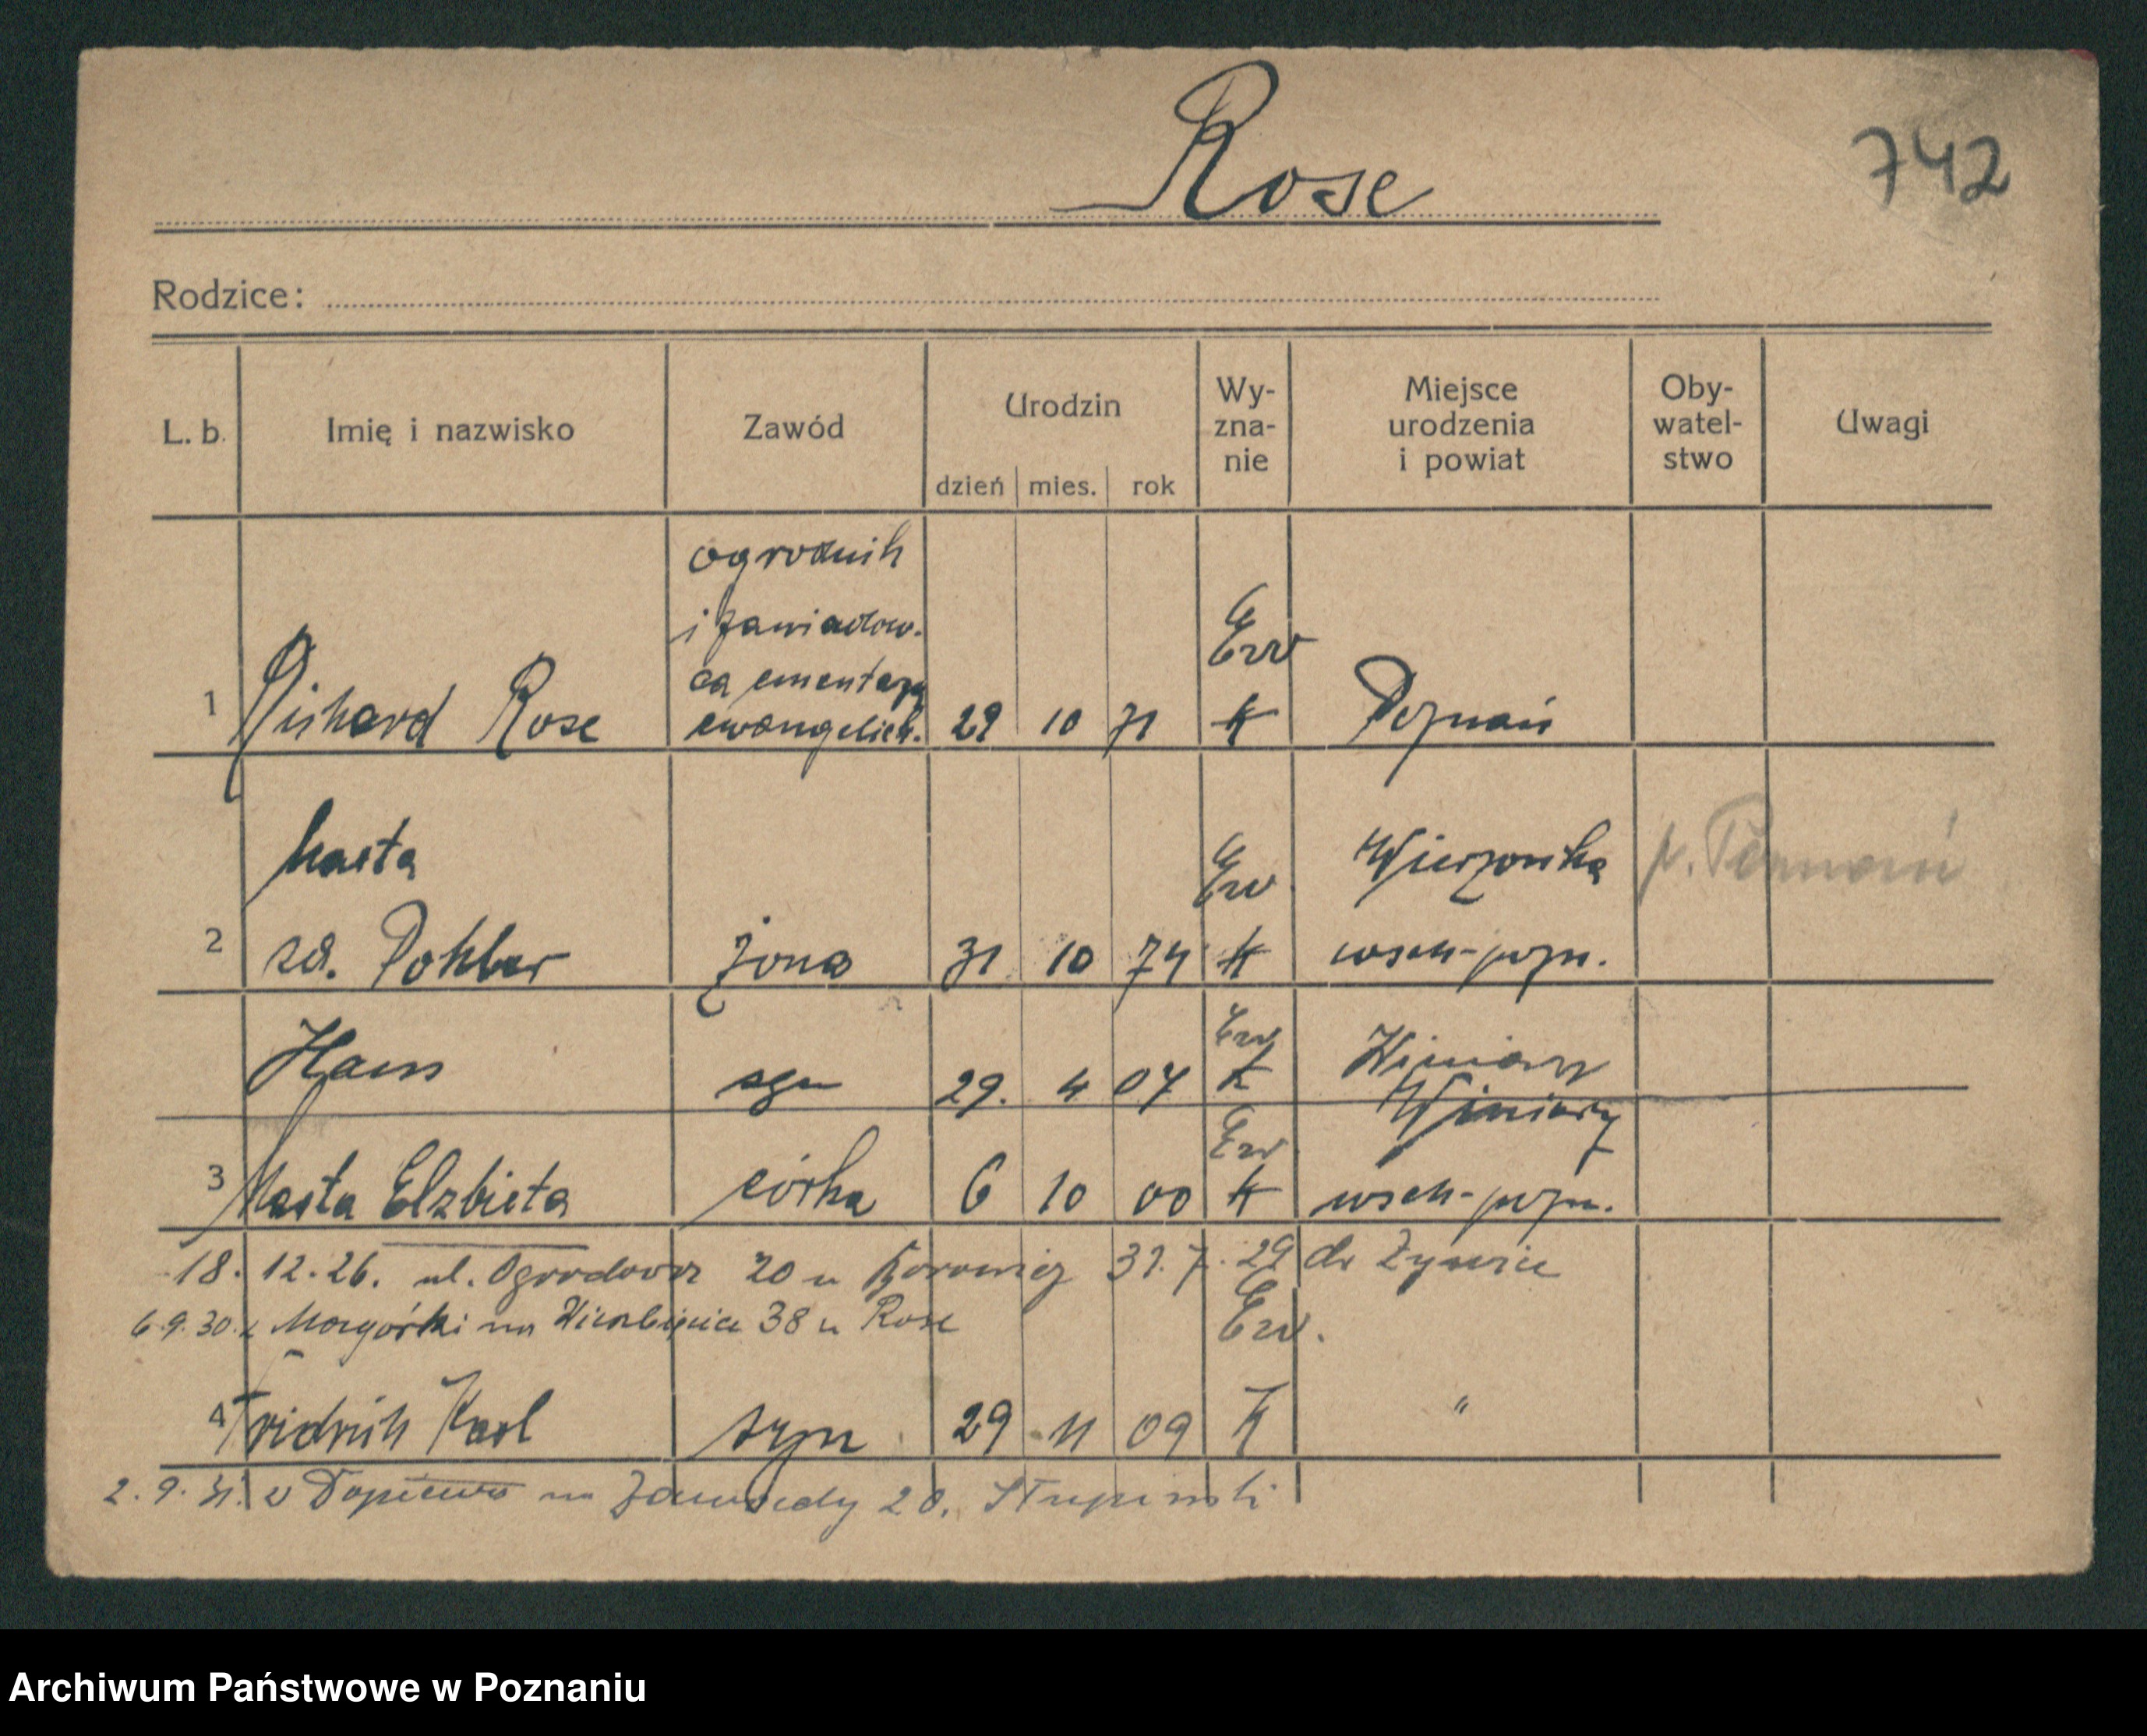 Rose
742
Rodzice:
L. b. Imię i nazwisko Zawód Urodzin dzień mies. rok Wy-zna-nie Miejsce urodzenia i powiat Oby-watel-stwo Uwagi
ogrodnik
i zawiadow.
ca cmentarzy
1 Richard Rose ewangelick. 29 10 71 Ew K Poznań
Marta Ew Wierzonka p. Poznań
2 zd. Pohler żona 31 10 74 K wsch-pozn.
Hans syn 29. 4 07 Ew K Winiary
Ew Winiary
3 Marta Elzbieta córka 6 10 00 K wsch-pozn.
18. 12. 26. ul. Ogrodowa 20 u 31. 7. 29 do Żywiec
6.9.30. z na Wierzbięcice 38 u Rose Ew.
4 Fridrich Karl syn 29 11 09 K "
2. 9. 31. z Dopiewa na Zawady 20.
Archiwum Państwowe w Poznaniu